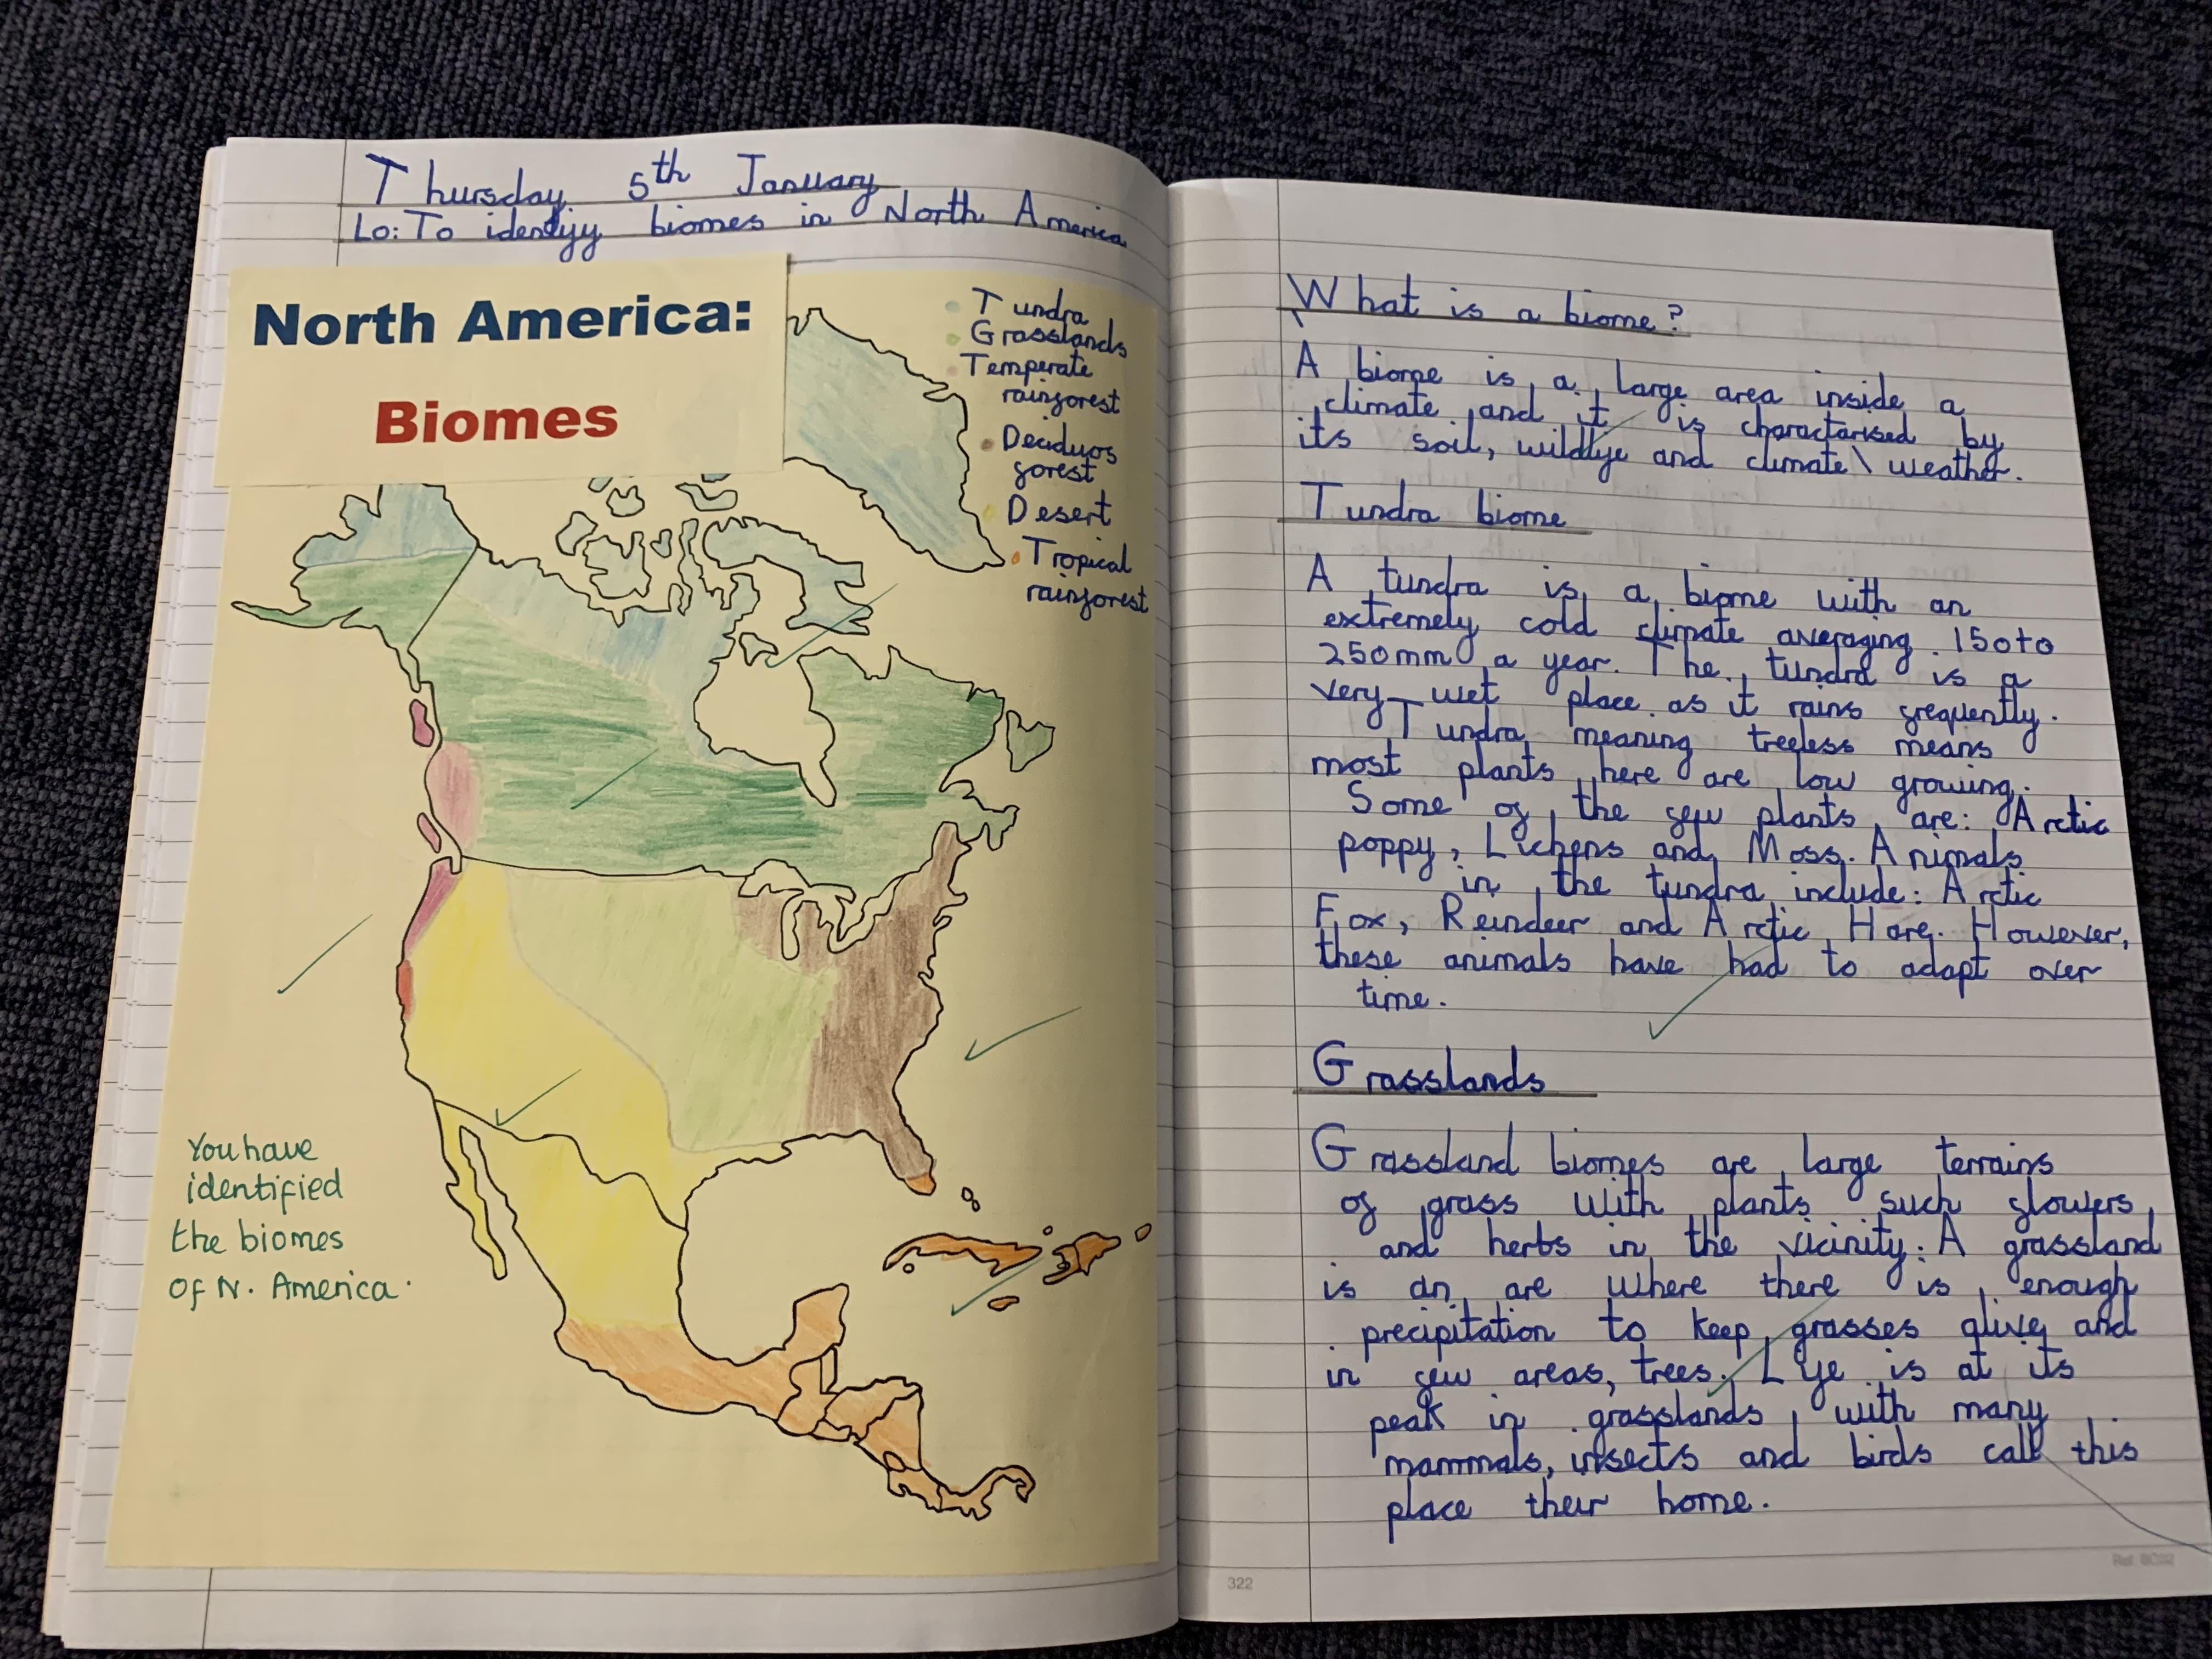 Thursday 5th January
Lo: To identify biomes in North America
North America:
Biomes
Tundra
Grasslands
Temperate
rainforest
Deciduos
forest
Desert
Tropical
rainforest
You have
identified
the biomes
of N. America.
What is a biome?
A biome is a large area inside a
climate and it is charactarised by
its soil, wildlife and climate\ weather.
Tundra biome
A tundra is a biome with an
extremely cold climate averaging 150 to
250mm a year. The tundra is a
very wet place as it rains frequently.
Tundra meaning treeless means
most plants here are low growing.
Some of the few plants are: Arctic
poppy, Lichens and Moss. Animals
in the tundra include: Arctic
Fox, Reindeer and Arctic Hare. However,
these animals have had to adapt over
time.
Grasslands
Grassland biomes are large terrains
of grass with plants such flowers
and herbs in the vicinity. A grassland
is an are where there is enough
precipitation to keep grasses alive and
in few areas, trees. Life is at its
peak in grasslands with many
mammals, insects and birds call this
place their home.
322